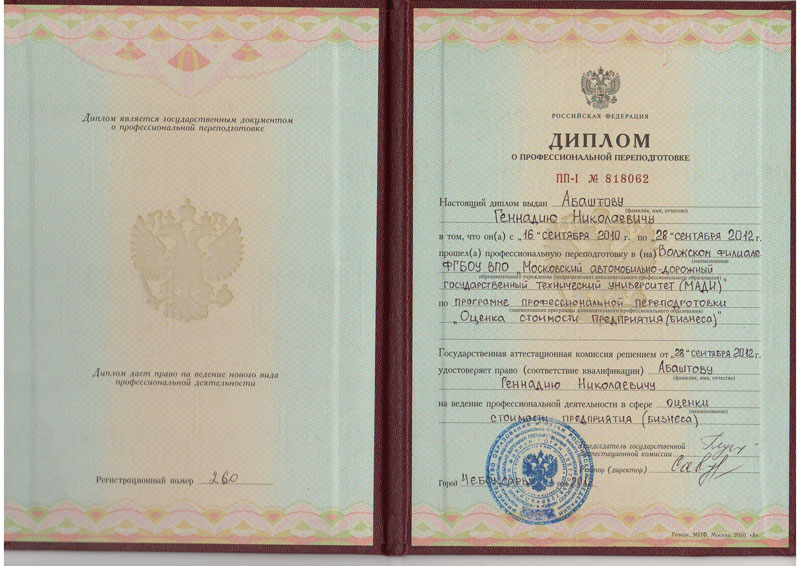 Диплом является государственным документом
о профессиональной переподготовке
Диплом дает право на ведение нового вида
профессиональной деятельности
Регистрационный номер 260
РОССИЙСКАЯ ФЕДЕРАЦИЯ
ДИПЛОМ
О ПРОФЕССИОНАЛЬНОЙ ПЕРЕПОДГОТОВКЕ
ПП-I № 818062
Настоящий диплом выдан Абаштову
(фамилия, имя, отчество)
Геннадию Николаевичу
в том, что он(а) с „16" сентября 2010 г. по „28" сентября 2012 г.
прошел(а) профессиональную переподготовку в (на) Волжском филиале
(наименование
ФГБОУ ВПО „Московский автомобильно-дорожный
образовательного учреждения (подразделения) дополнительного профессионального образования)
государственный технический университет (МАДИ)"
по программе профессиональной переподготовки
(наименование программы дополнительного профессионального образования)
„Оценка стоимости предприятия (бизнеса)"
Государственная аттестационная комиссия решением от „28" сентября 2012 г.
удостоверяет право (соответствие квалификации) Абаштову
(фамилия, имя, отчество)
Геннадию Николаевичу
на ведение профессиональной деятельности в сфере оценки
(наименование)
стоимости предприятия (бизнеса)
Председатель государственной
аттестационной комиссии
(директор)
Город Чебоксары 2012
Гознак, МПФ, Москва, 2010, «А».